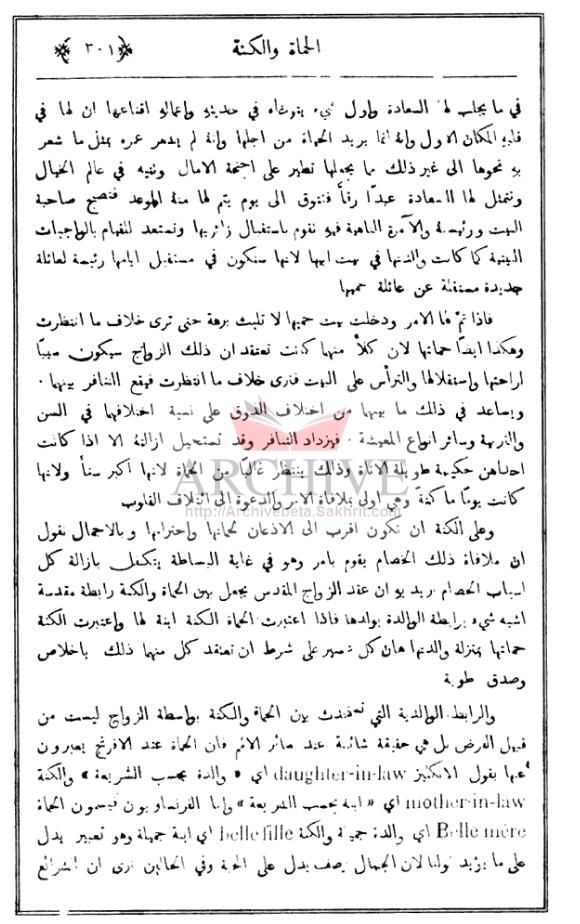 الحماة والكنة
﴿٣٠١﴾
في ما يجلب لها السعادة واول شيء يتوخاه في حديثه واعماله اقناعها ان لها في
قلبه المكان الاول وانه انما يريد الحياة من اجلها وانه لم يشعر عمره بمثل ما شعر
به نحوها الى غير ذلك مما يجعلها تطير على اجنحة الامال وتتيه في عالم الخيال
وتتمثل لها السعادة عبدًا رقًا فتتوق الى يوم يتم لها منه الموعد فتصبح صاحبة
البيت ورئيسة والآمرة الناهية فيه تقوم باستقبال زائريها وتستعد للقيام بالواجبات
البيتية كما كانت والدتها في بيت ابيها لانها ستكون في مستقبل ايامها رئيسة لعائلة
جديدة مستقلة عن عائلة حميها
فاذا تمَّ لها الامر ودخلت بيت حميها لا تلبث برهة حتى ترى خلاف ما انتظرت
وهكذا ايضًا حماتها لان كلاً منهما كانت تعتقد ان ذلك الزواج سيكون سببًا
لراحتها واستقلالها والترأس على البيت فترى خلاف ما انتظرت فيقع التنافر بينهما ·
ويساعد في ذلك ما بينهما من اختلاف الذوق على نسبة اختلافهما في السن
والتربية وسائر انواع المعيشة · فيزداد التنافر وقد تستحيل ازالته الا اذا كانت
احداهن حكيمة طويلة الاناة وذلك ينتظر غالبًا من الحماة لانها اكبر سنًا ولانها
كانت يومًا ما كنة وهي اولى بملافاة الامر والدعوة الى ائتلاف القلوب
وعلى الكنة ان تكون اقرب الى الاذعان لحماتها واحترامها وبالاجمال نقول
ان ملافاة ذلك الخصام يقوم بامر وهو في غاية البساطة يتكفل بازالة كل
اسباب الخصام نريد به ان عقد الزواج المقدس يجعل بين الحماة والكنة رابطة مقدسة
اشبه شيء برابطة الوالدة بولدها فاذا اعتبرت الحماة الكنة ابنة لها واعتبرت الكنة
حماتها بمنزلة والدتها هان كل عسير على شرط ان تعتقد كل منهما ذلك باخلاص
وصدق طوية
والرابطة الوالدية التي تعقدت بين الحماة والكنة بواسطة الزواج ليست من
قبيل الفرض بل هي حقيقة شائعة عند سائر الامم فان الحماة عند الافرنج يعبرون
عنها بقول الانكليز daughter-in-law اي « والدة بحسب الشريعة » والكنة
mother-in-law اي « ابنة بحسب الشريعة » واما الفرنساويون فيسمون الحماة
Belle mère اي والدة جميلة والكنة belle fille اي ابنة جميلة وهو تعبير يدل
على ما يؤيد قولنا لان الجمال وصف يدل على المحبة وفي الحالين نرى ان الشرائع
ARCHIVE
http://Archivebeta.Sakhrit.com